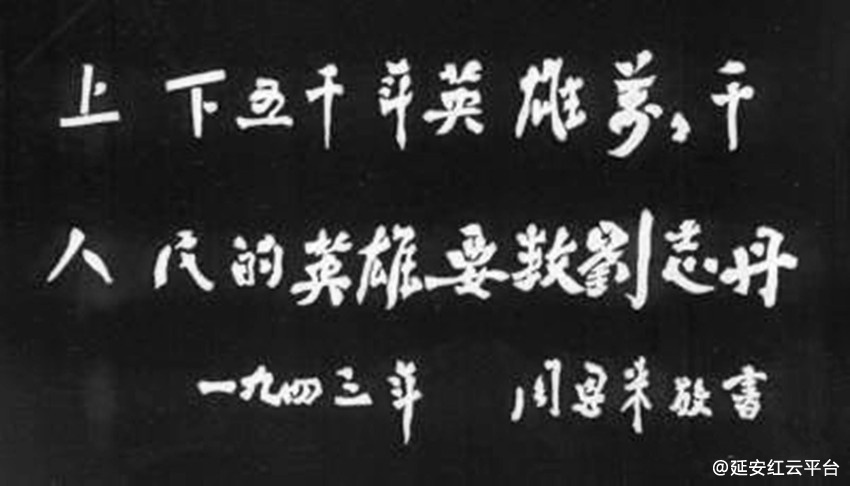 上下五千年英雄萬〻千
人民的英雄要数劉志丹
一九四三年 周恩来敬書
@延安红云平台